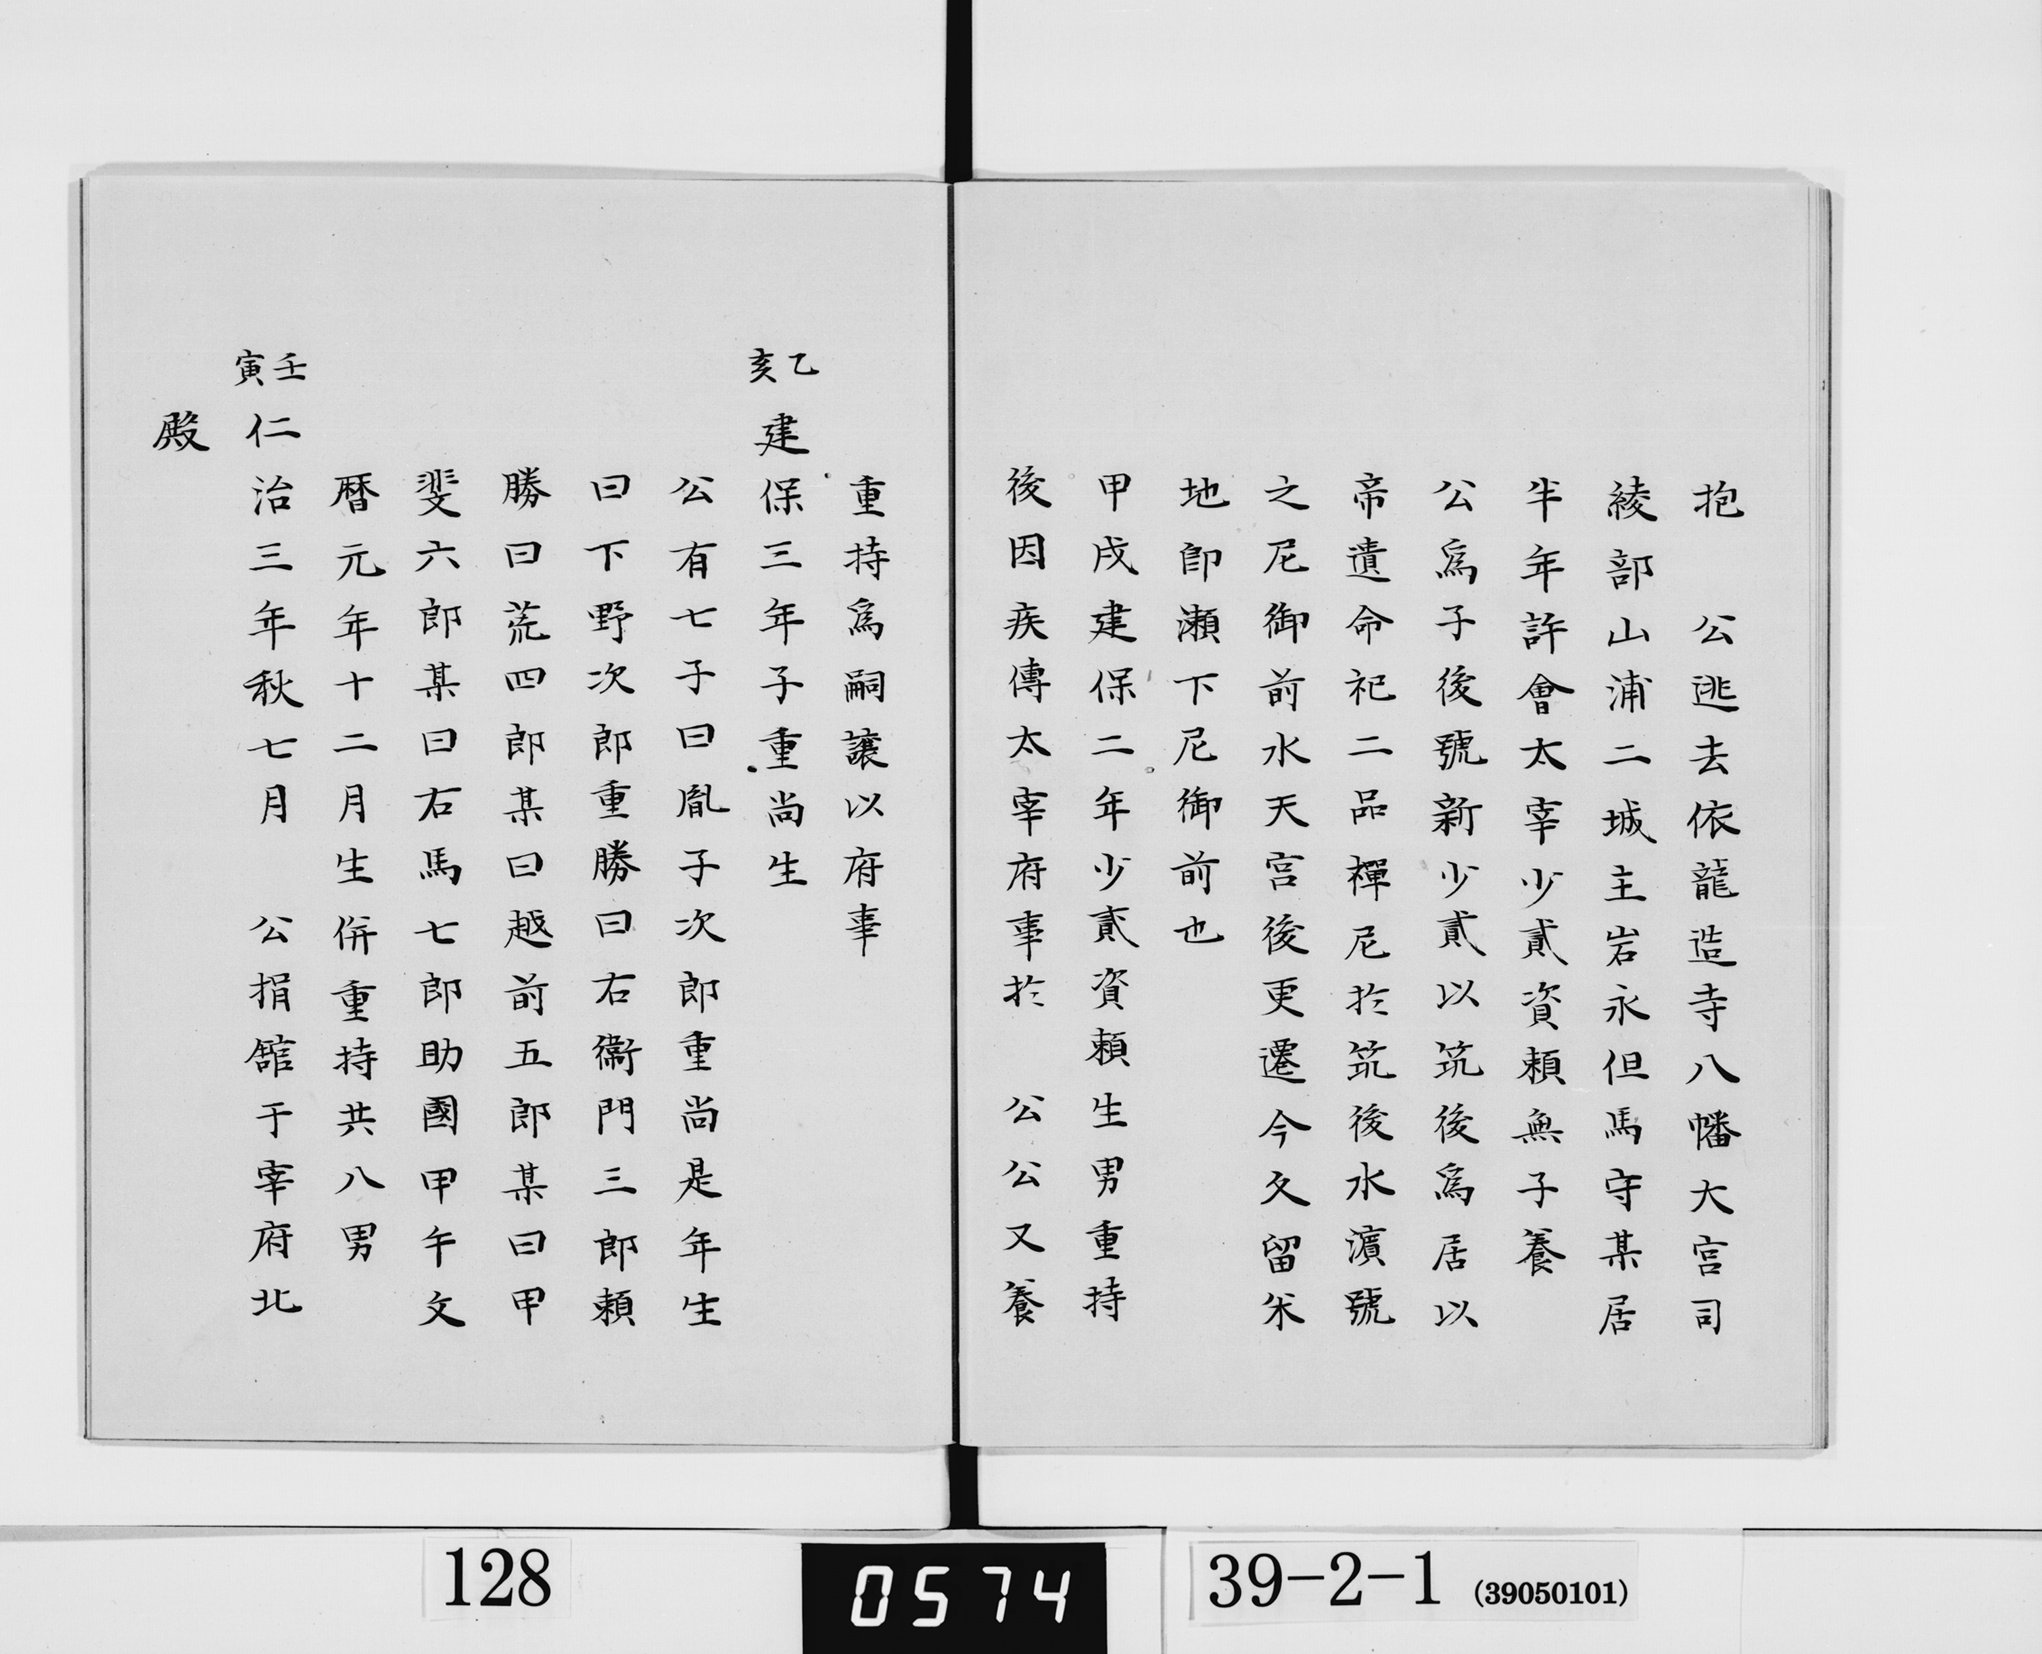 抱　公逃去依龍造寺八幡大宮司
綾部山浦二城主岩永但馬守某居
半年許會太宰少貳資頼無子養
公爲子後號新少貳以筑後爲居以
帝遺命祀二品禪尼於筑後水濱號
之尼御前水天宮後更遷今久留米
地卽瀬下尼御前也
甲戌建保二年少貳資頼生男重持
後因疾傳太宰府事於　公公又養
重持爲嗣譲以府事
乙亥　建保三年子重尚生
公有七子曰胤子次郎重尚是年生
曰下野次郎重勝曰右衞門三郎頼
勝曰荒四郎某曰越前五郎某曰甲
斐六郎某曰右馬七郎助國甲午文
暦元年十二月生併重持共八男
壬寅　仁治三年秋七月　公捐舘于宰府北
殿
128
0574
39-2-1 (39050101)